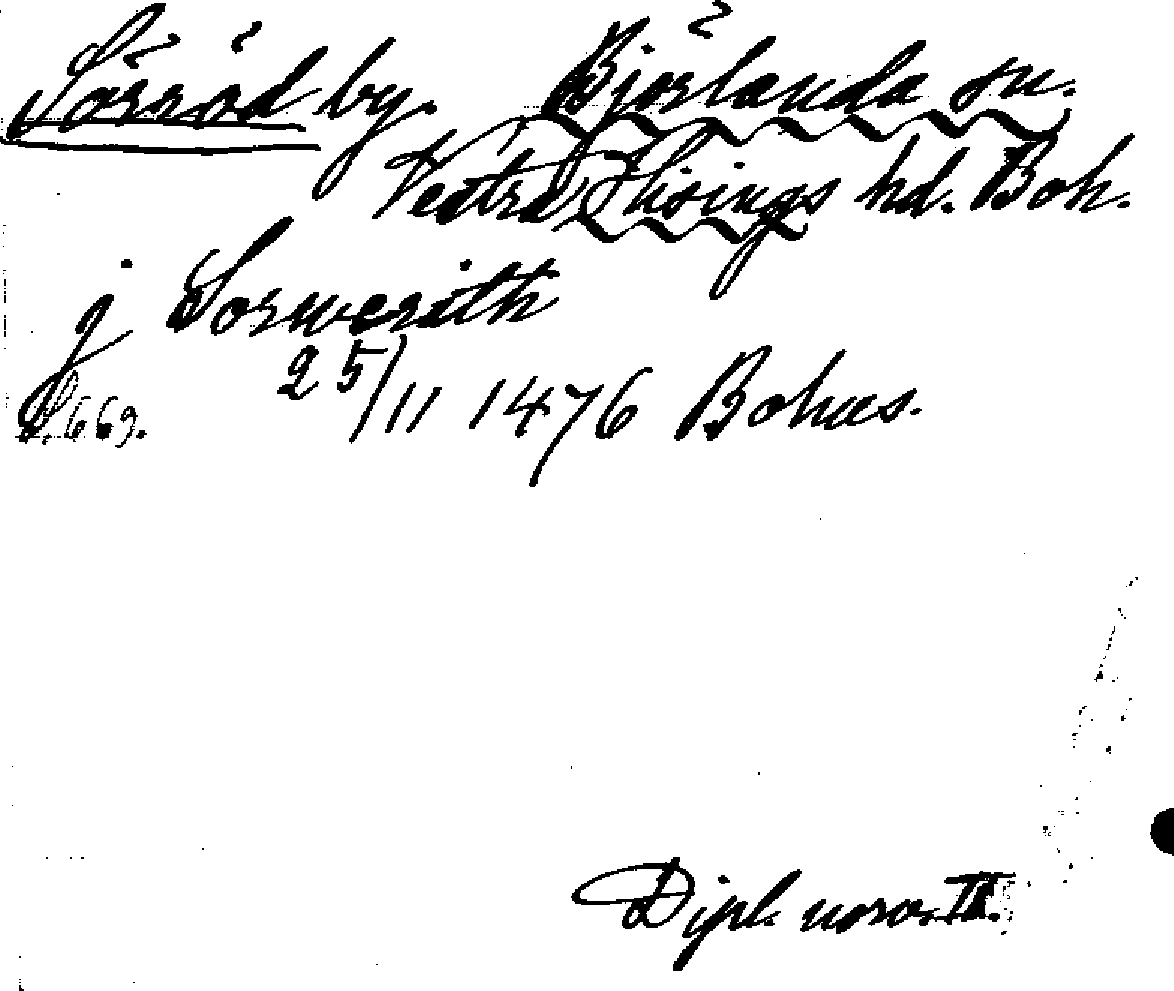 Sörröd by. Björlanda sn.
Vestra Hisings hd. Boh.
j Sorweröth
25/11 1476 Bohus.
S. 669.
Dipl. norv. II.